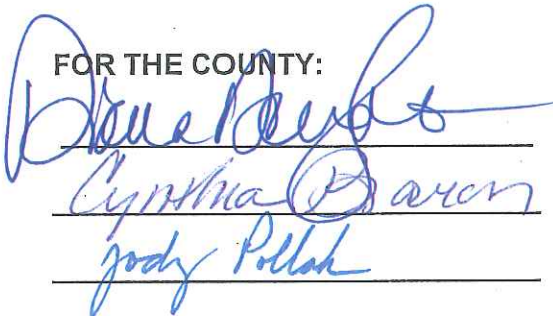 FOR THE COUNTY:
Cynthia Baron
Jody Pollak